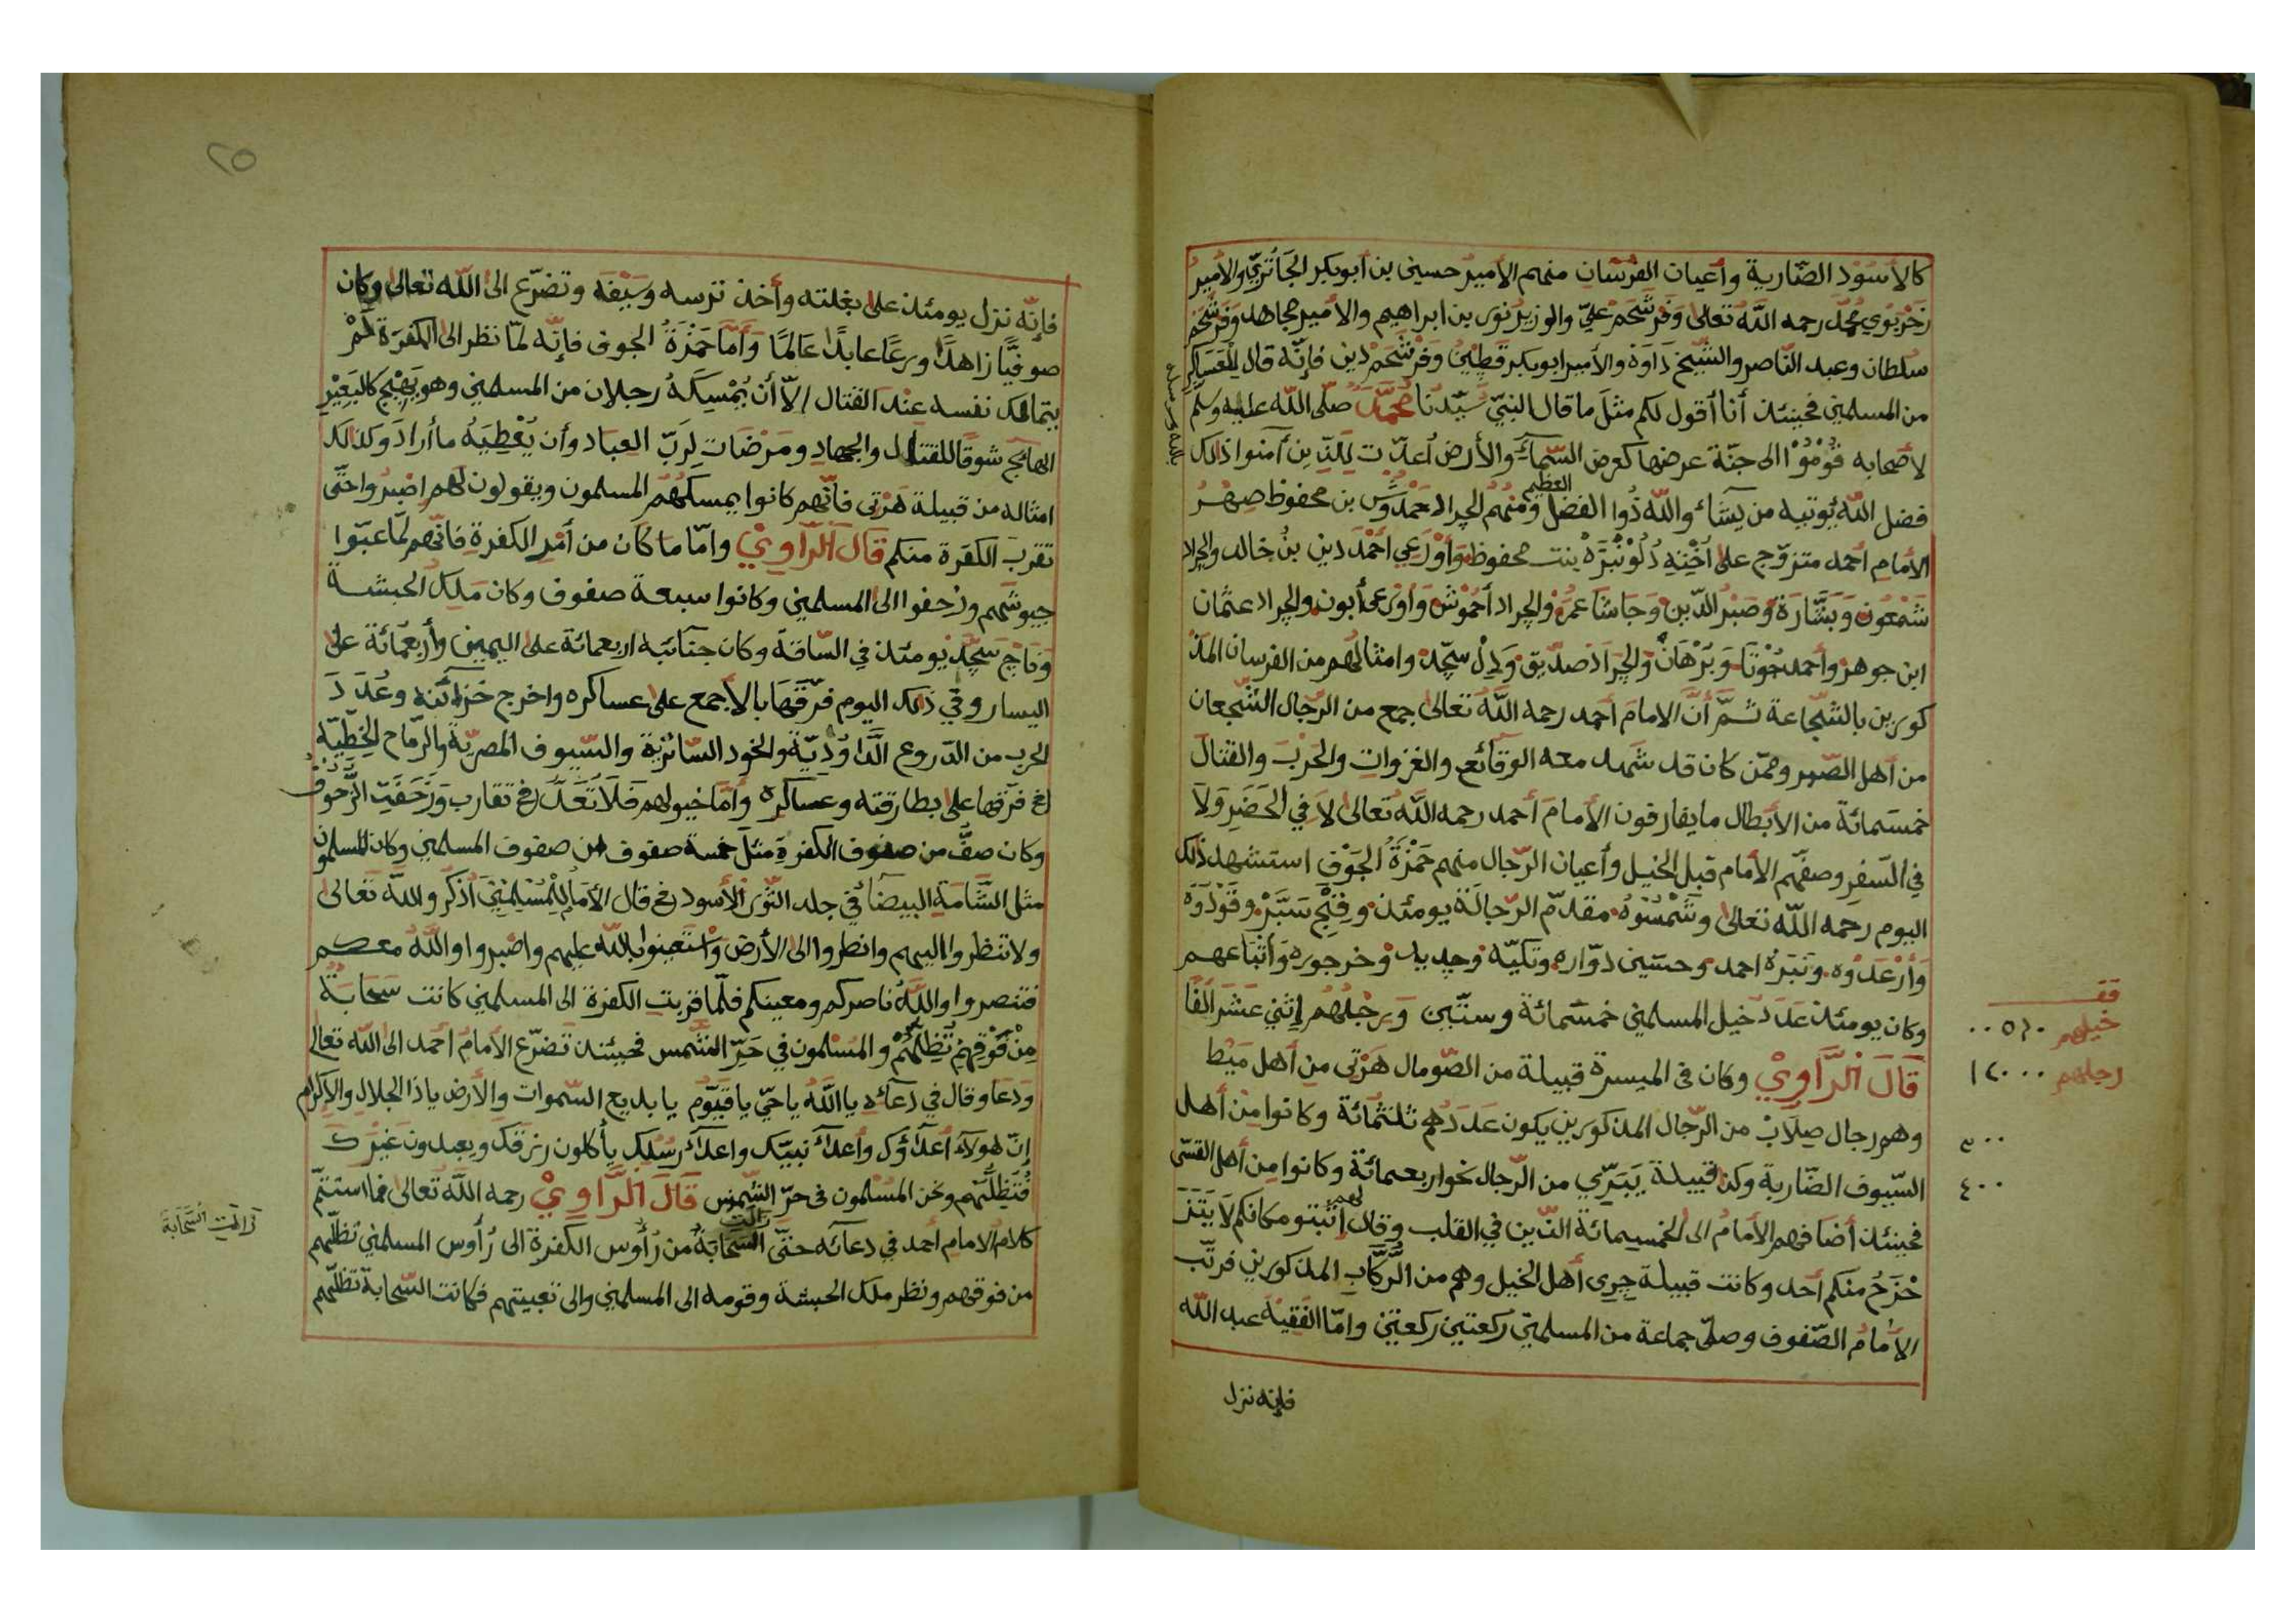 كالأسُوْد الضّارية وأعيان الفُرْسَان منهم الأميرُ حسين بن أبوبكر الجَاتُرِيّ والأميرُ
زَحْرَبُوي مُحَمَّد رحمه اللّه تعالى وَفَرَشَحَمْ عَلِيّ والوزيرُ نُوْر بن ابراهيم والأمير مجاهد وَفَرَشَحَمْ
سُلطان وعبد النّاصر والشّيخ دَاوَهْ والأمير ابوبكر قَطِيْن وَفَرْشَحَمْ دِين فإنّه قال لِلْعَسَاكِر
من المسلمين فحينئذ أنا أقول لكم مثلَ ما قال النبيّ سَيّدُنَا مُحَمَّدٌ صلّى اللّه عليه وسلم
لأصحابه قُوْمُوْا الى جنّة عرضها كعرض السّماءِ والأرض أعدّت للّذين آمنوا ذلك
فضل اللّه يُوتيه من يَشَاءُ واللّه ذُوا الفضل العظيم ومنهم الجراد حَمْدُوْش بن محفوظ صِهْرُ
الأمام احمد متزوّج على اُخْتِهِ دُلُوْنْبَرَهْ بنت محفوظ وَأَوْرَعِي أحْمَد دين بنُ خالد والجراد
شَمْعُون وَبَشَّارَة وَصَبْرُ الدّين وَجَاشَا عمَرُ والجراد أحْمُوْش وَأورَعِى أبون والجراد عثمان
ابن جوهر وأحمد جُوْتَا وَبَرْهَانُ وَالجَرَادْ صدّيق وَدِلْ سِجّد وامثالُهم من الفرسان المذ
كورين بالشّجاعة ثمَّ أنَّ الامامَ أحمد رحمه اللّه تعالى جمع من الرّجال الشّجعان
من أهل الصّبر وممّن كان قد شهد معه الوقائع والغزوات والحَرْبَ والقتال
خمسَمائة من الأبطال ما يفارقون الأمامَ أحمد رحمه اللّه تعالى لاَ في الحَضَرِ وَلاَ
في السّفرِ وصفّهم الأمام قبل الخيل وأعيان الرّجال منهم حَمْزَةُ الجَوْفِ استشهد ذلك
اليوم رحمه اللّه تعالى وشَمْسُوْهُ مقدّم الرّجالَة يومئذ وَفِتْح سَبَّرْ وَقَوْدَوَهْ
وَأرْعَدُوْه وَنَبَرَهْ احمد وحسَين دوّاره وتكيّه وَجِدِيد وْخرجوره وَأتْبَاعهم
وكان يومئذ عَدَدُ خيل المسلمين خمسَمائة وستّين وَرَجْلُهُم اِثنَيْ عَشَرَ ألفًا
قَالَ الرَّاوِيْ وكان فى الميسرة قبيلة من الصّومال هَرْتِى مِن أهل مَيْط
وهم رجال صِلَابٌ من الرّجال المذكورين يكون عَدَدُهم ثلثمائة وكانوا مِنْ أهل
السّيوف الضّاربة وكذا قبيلة يَبَرّي من الرّجال نحو اربعمائة وكانوا مِن أهل القسّى
فحينئذ أضافهم الأمامُ الى الخمسمائة الذّين في القلب وقال لهم اثبتو مكانكم لَا يَتَزَ
حْزَحُ منكم أحد وكانت قبيلة جِرِى أهل الخيل وهم من الرُّكّاب المذكورين فرتّب
الأمَامُ الصّفوف وصلّى جماعة من المسلمين ركعتين ركعتين وامّا الفَقِيْه عبد اللّه
فإنه نزل
فقـ
خيلهم ٥٦٠
رجلهم ١٢٠٠٠
٣٠٠
٤٠٠
٢٥
فإنّه نزل يومئذ على بغلته وأخذ ترسه وسَيْفَه وتضرّع الى اللّه تعالى وكان
صوفيًّا زاهدًا ورعًا عابدًا عَالمًا وَأمّا حَمْزَةُ الجوف فإنّه لمّا نظر الى الكفَرَة لَمْ
يتمالك نفسه عِنْدَ القتال الاّ أن يُمْسِكَهُ رجلان من المسلمين وهو يَهِيْجُ كالبَعِيْر
الهائج شوقًا للقتال والجهادِ ومَرْضَات لِرَبّ العباد وأن يُعْطِيَهُ ما أرادَ وكذلك
امثاله من قبيلة هَرْتِى فانّهم كانوا يمسكهُم المسلمون ويقولون لهم اصْبِرُوا حتّى
تقربَ الكَفَرة منكم قَالَ الرّاوِيْ وامّا ما كَان من أمْرِ الكفرةِ فانّهم لمّا عَبّوا
جيوشَهم وزحفوا الى المسلمين وكانوا سبعة صفوف وكان مَلِك الحبشة
وَنَاج سَجّد يومئذ في السّاقة وكان جنائبه اربعمائة على اليمين وأربعمائة على
اليسار وفي ذلك اليوم فرّقَها بالأجمع على عساكره واخرج خَزَائنه وعُدَدَ
الحرب من الدّروع الدَّاوُدِيّة والخود السائريّة والسّيوف المصريّة والرّماح الخِطّيّة
ثم فرّقها على بطارقته وعساكره وأمّا خيولهم فَلَا تُعَدّ ثم تقارب وَزَحَفَتِ الزّحُوْفُ
وكان صفٌّ من صفوف الكفرةِ مثلَ خمسة صفوف من صفوف المسلمين وكان المسلمون
مثل الشّامة البيضَاءِ في جلد الثّوْر الأسود ثم قال الأمَامُ لِلْمُسْلِمِيْنَ اُذكُروا اللّه تعالى
ولا تنظروا اليهم وانظروا الى الأرض وَاسْتَعِيْنُوا باللّه عليهم واصْبِروا واللّهُ معكم
فتنصروا واللّهُ ناصركم ومعينكم فلمّا قربت الكفرة الى المسلمين كانت سَحَابَةٌ
مِنْ فَوْقِهِمْ تُظِلُّهُمْ والمُسْلمون في حَرّ الشّمس فحينئذ تَضرّع الأمامُ أحمد الى اللّه تعالى
وَدَعَا وقال في دعائه يا اللّهُ يا حَيّ يا قيّوم يا بديع السّموات والأرض يا ذا الجلال والإكرام
إنّ هولاء أعدَاؤك وأعداءُ نبيّك واعداءُ رسُلك يأكلون رزقك ويعبدون غيرك
فَتُظِلُّهُم ونحن المُسْلمون في حرّ الشّمس قَالَ الرَّاوِيْ رحمه اللّه تعالى فما استتمّ
كلامُ الامام أحمد في دعائه حتّى زالت السّحَابَةُ من رُأوس الكفرة الى رُأوس المسلمين تظلّهم
من فوقهم ونظر ملك الحبشة وقومه الى المسلمين والى تعبيتهم فكانت السّحابة تظلّهم
زالت السَّحَابة